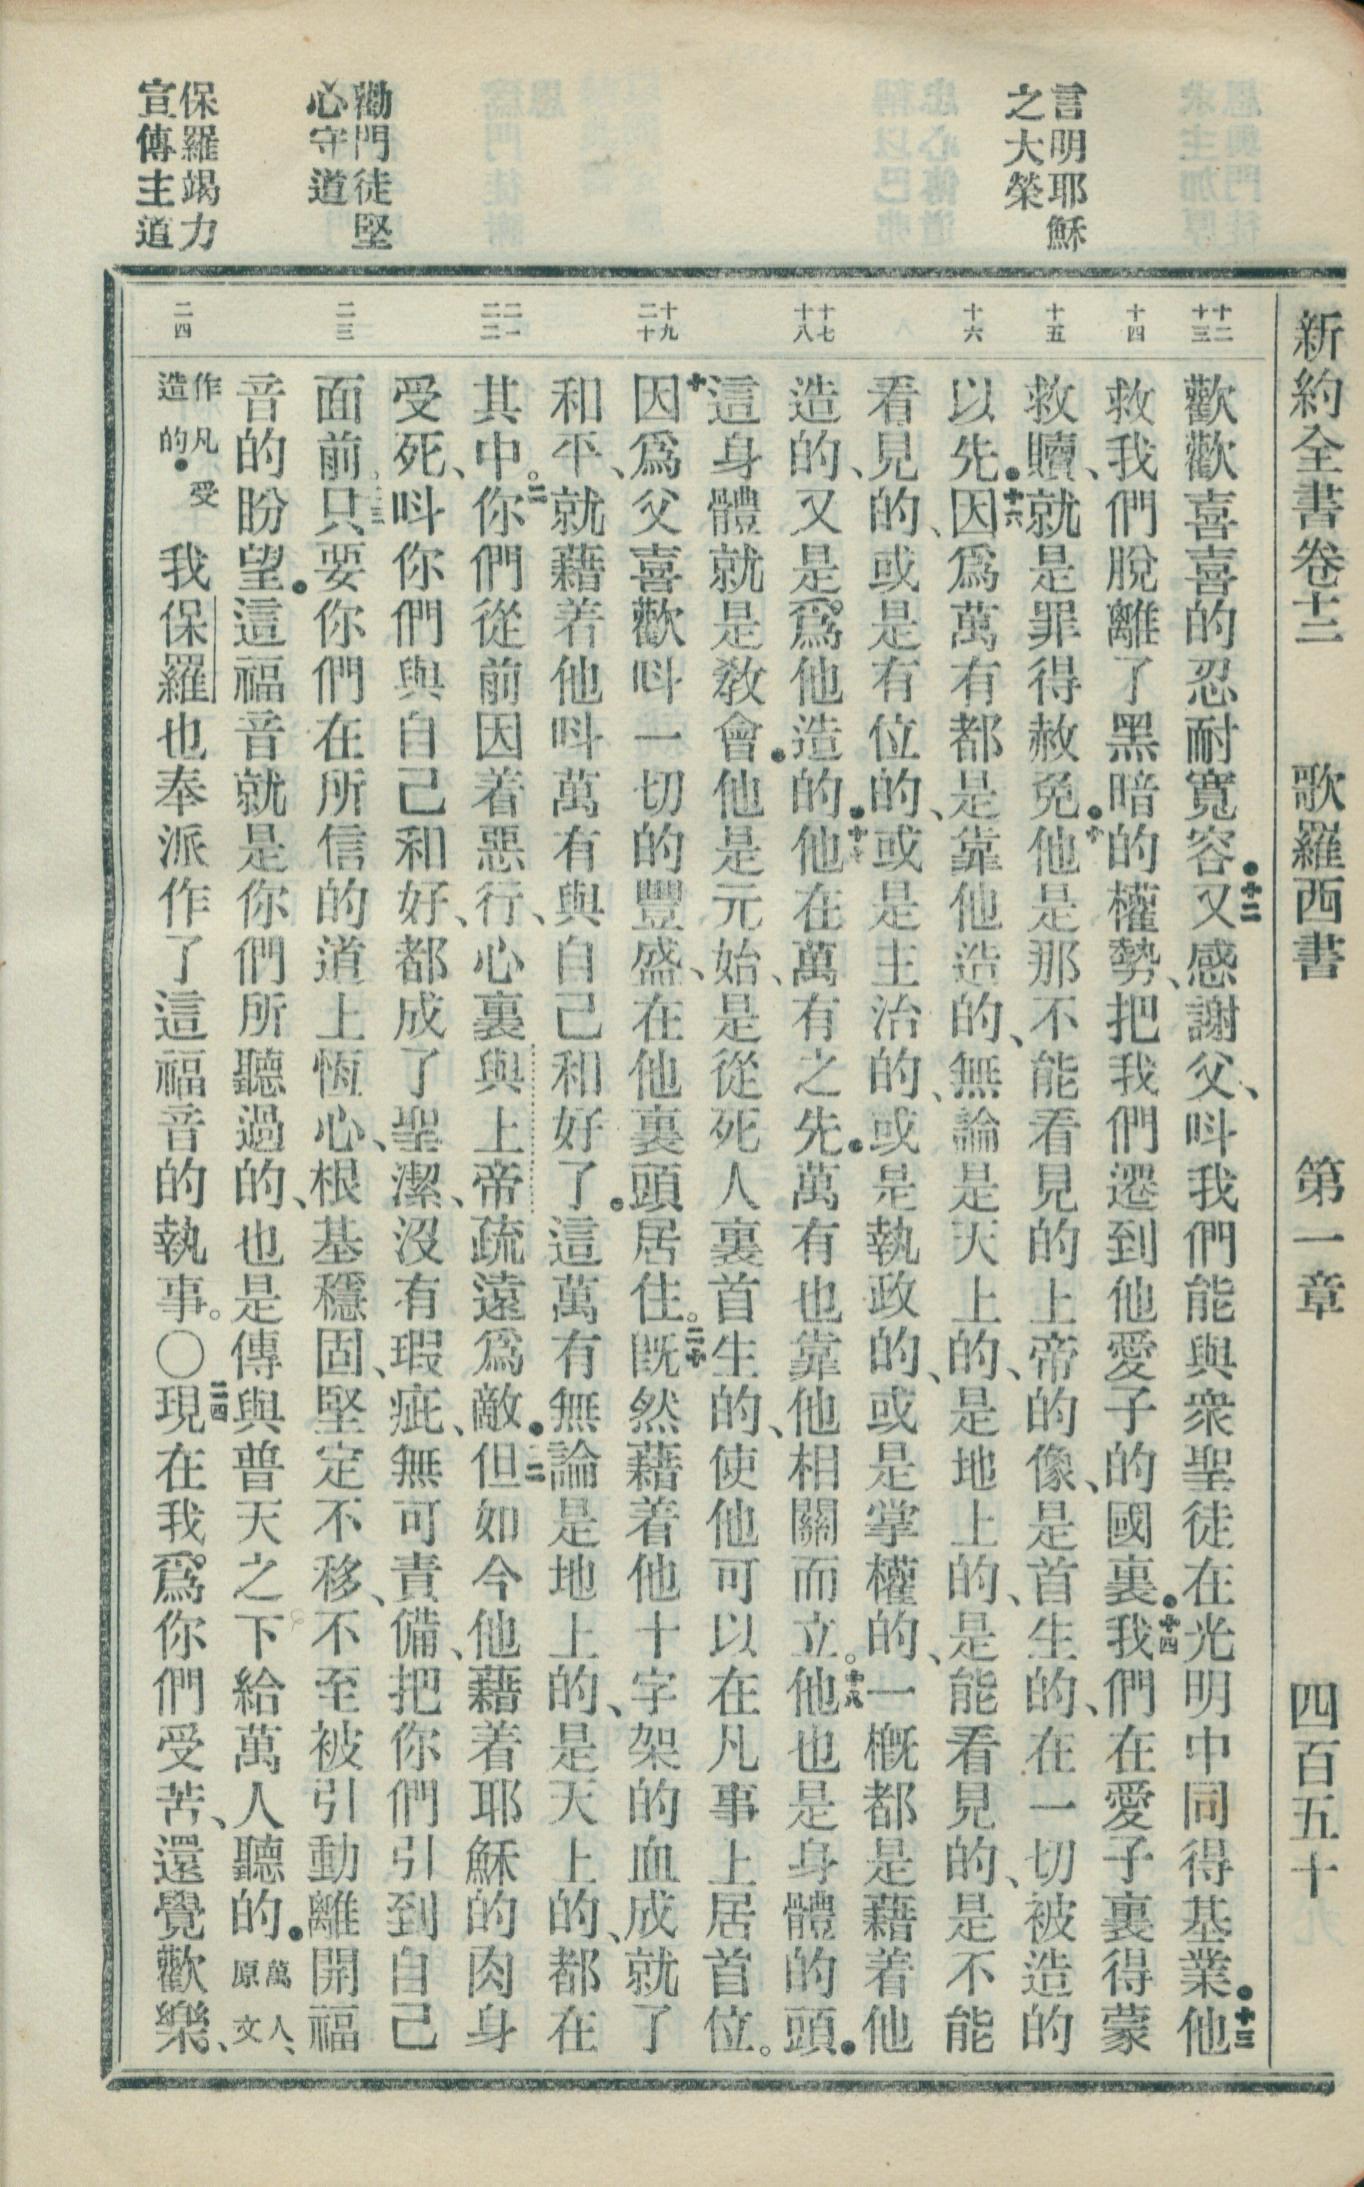 新約全書卷十二　歌羅西書　第一章　四百五十
言明耶穌
之大榮
勸門徒堅
心守道
保羅竭力
宣傳主道
十二
十三
十四
十五
十六
十七
十八
十九
二十
二一
二二
二三
二四
歡歡喜喜的忍耐寬容●十二又感謝父、呌我們能與衆聖徒在光明中同得基業●十三他
救我們脫離了黑暗的權勢、把我們遷到他愛子的國裏●十四我們在愛子裏得蒙
救贖、就是罪得赦免●十五他是那不能看見的上帝的像、是首生的、在一切被造的
以先●十六因爲萬有都是靠他造的、無論是天上的、是地上的、是能看見的、是不能
看見的、或是有位的、或是主治的、或是執政的、或是掌權的、一概都是藉着他
造的、又是爲他造的●十七他在萬有之先●萬有也靠他相關而立。十八他也是身體的頭●
這身體就是敎會●他是元始、是從死人裏首生的、使他可以在凡事上居首位。
十九因爲父喜歡呌一切的豐盛、在他裏頭居住。二十旣然藉着他十字架的血成就了
和平、就藉着他呌萬有與自己和好了●這萬有無論是地上的、是天上的、都在
其中。二一你們從前因着惡行、心裏與上帝疏遠爲敵●二二但如今他藉着耶穌的肉身
受死、呌你們與自己和好、都成了聖潔、沒有瑕疵、無可責備、把你們引到自己
面前。二三只要你們在所信的道上恆心、根基穩固、堅定不移、不至被引動離開福
音的盼望●這福音就是你們所聽過的、也是傳與普天之下給萬人聽的●萬人、原文
作凡受造的●我保羅也奉派作了這福音的執事。〇二四現在我爲你們受苦、還覺歡樂、